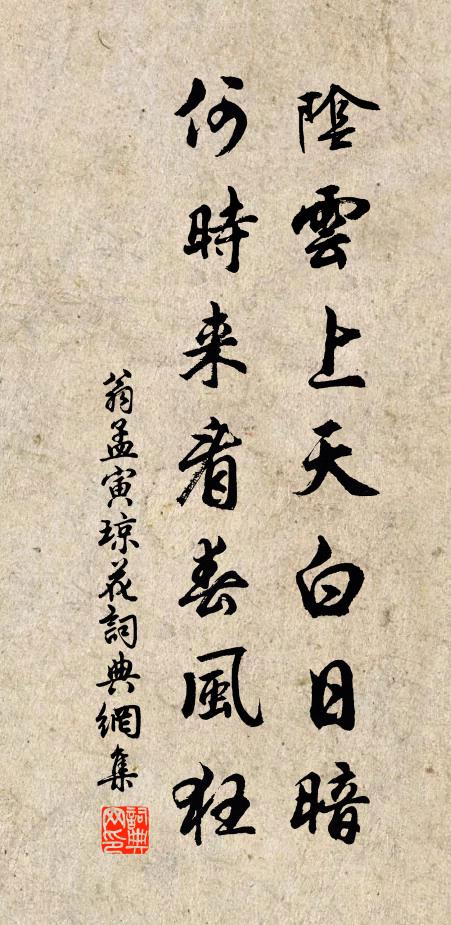 陰雲上天白日暗
何時来看春風狂
翁孟寅瓊花詞典網集
詞典网印